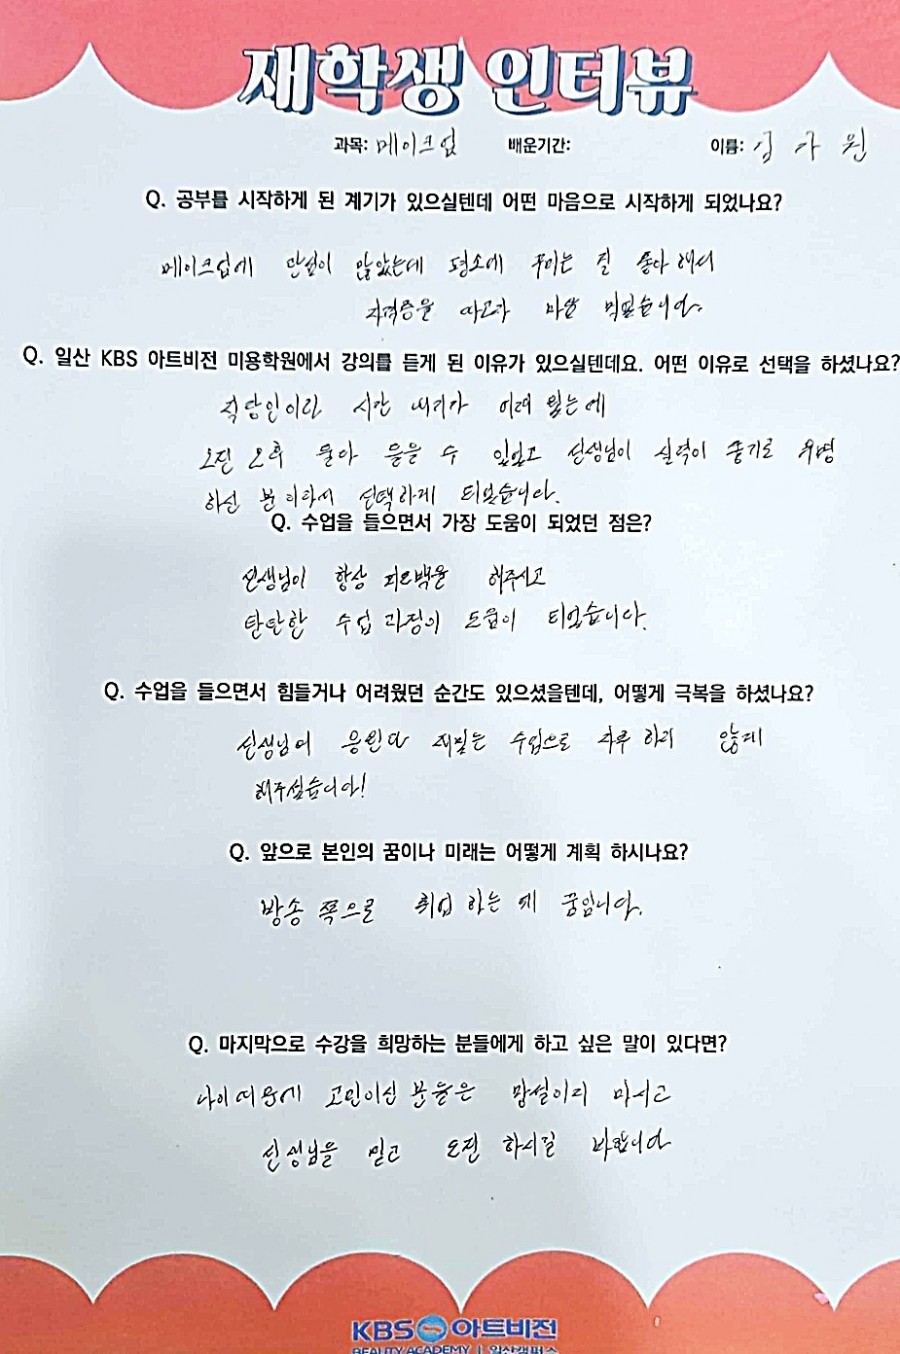 재학생 인터뷰
과목: 메이크업 배운기간: 이름: 김가원
Q. 공부를 시작하게 된 계기가 있으실텐데 어떤 마음으로 시작하게 되었나요?
메이크업에 관심이 많았는데 평소에 꾸미는 걸 좋아해서
자격증을 따고자 마음 먹었습니다.
Q. 일산 KBS 아트비전 미용학원에서 강의를 듣게 된 이유가 있으실텐데요. 어떤 이유로 선택을 하셨나요?
직장인이라 시간 내기가 어려웠는데
오전 오후 골라 들을 수 있었고 선생님이 실력이 좋기로 유명
하신 분이라서 선택하게 되었습니다.
Q. 수업을 들으면서 가장 도움이 되었던 점은?
선생님이 항상 피드백을 해주시고
탄탄한 수업 과정이 도움이 되었습니다.
Q. 수업을 들으면서 힘들거나 어려웠던 순간도 있으셨을텐데, 어떻게 극복을 하셨나요?
선생님의 응원과 재밌는 수업으로 지루하지 않게
해주셨습니다!
Q. 앞으로 본인의 꿈이나 미래는 어떻게 계획 하시나요?
방송 쪽으로 취업 하는 게 꿈입니다.
Q. 마지막으로 수강을 희망하는 분들에게 하고 싶은 말이 있다면?
나이 때문에 고민이신 분들은 망설이지 마시고
선생님을 믿고 도전 하시길 바랍니다
KBS 아트비전
BEAUTY ACADEMY | 일산캠퍼스